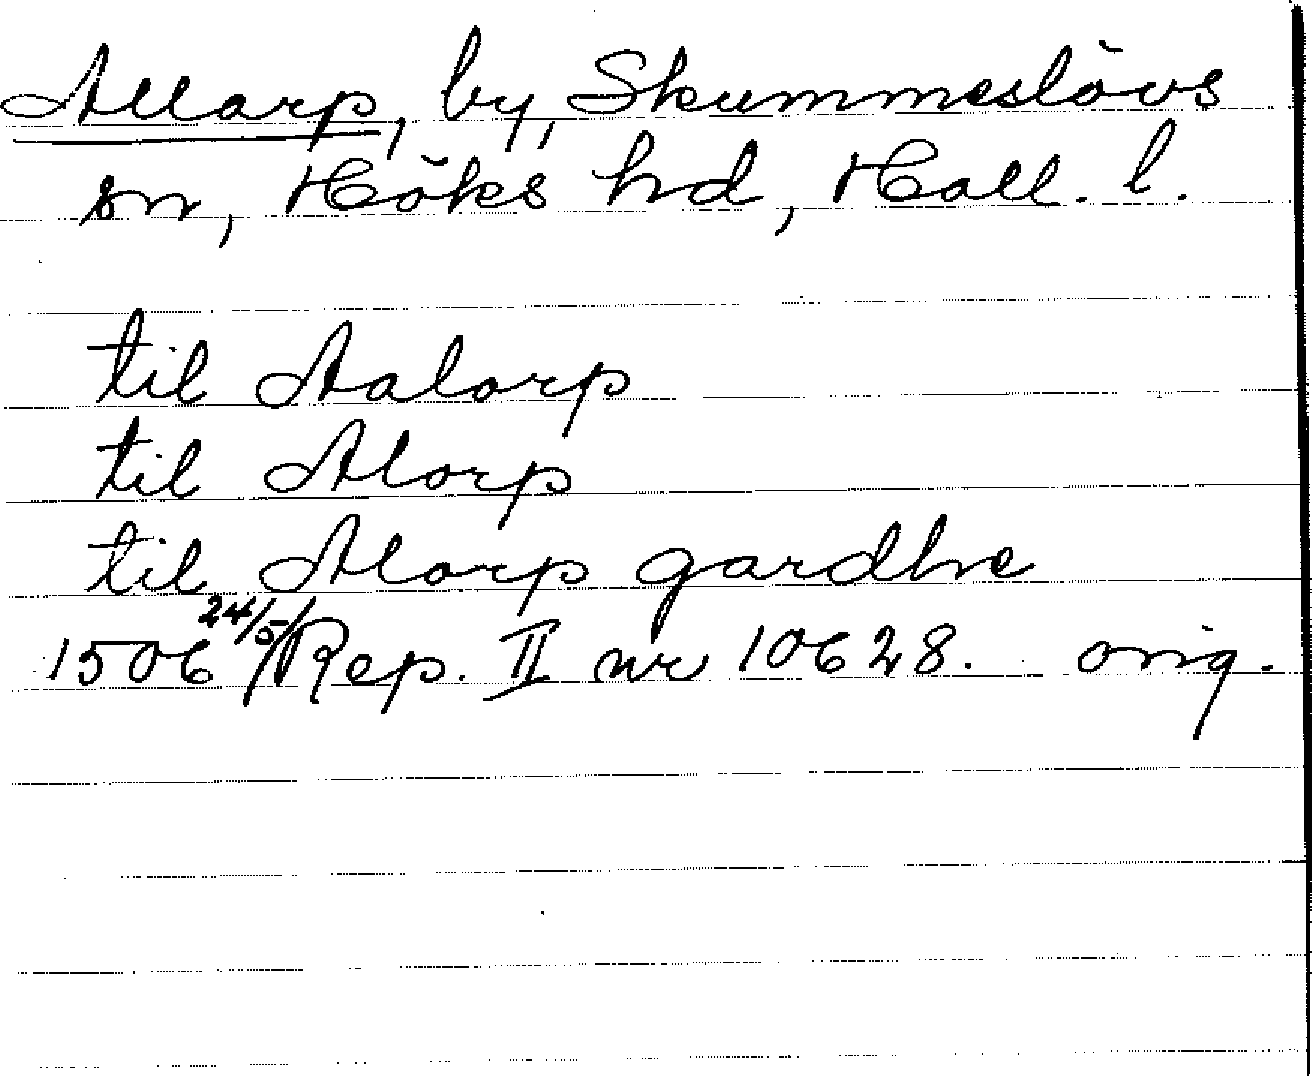 Allarp, by, Skummeslövs
sn, Höks hd, Hall. l.
til Aalorp
til Alorp
til Alorp gardhe
1506 24/5 Rep. II nr 10628. orig.